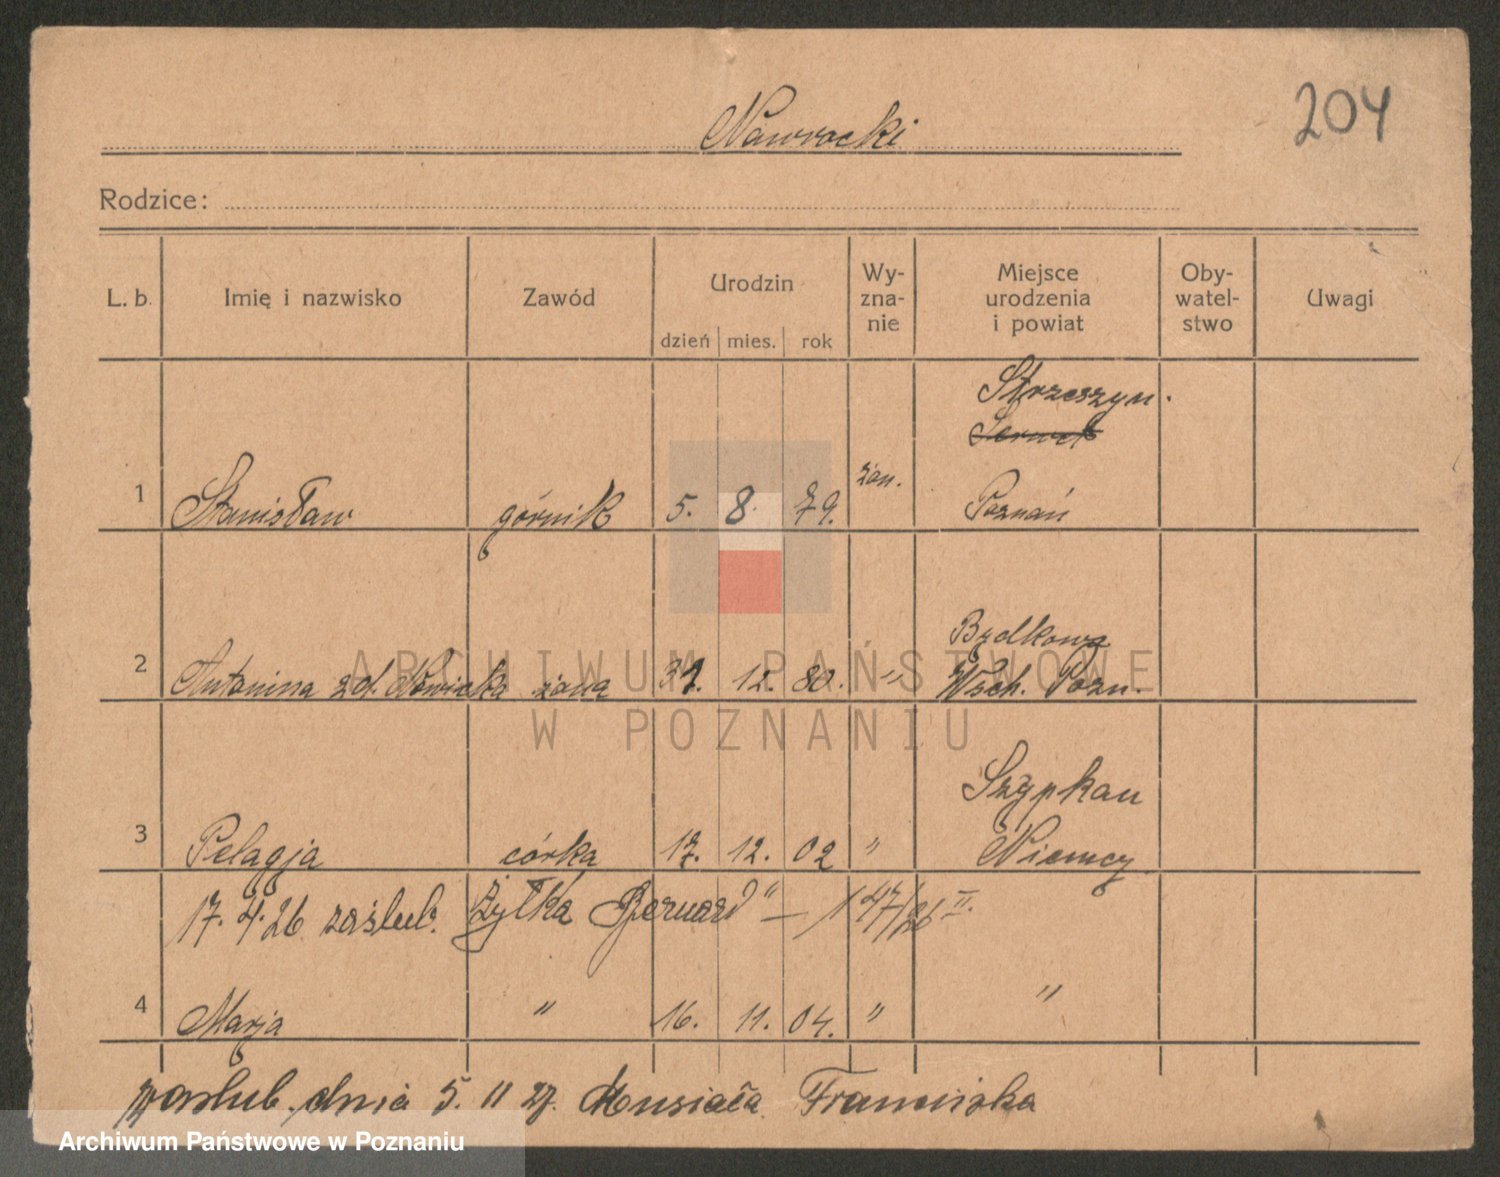 204
Nawrocki
Rodzice:
L. b. Imię i nazwisko Zawód Urodzin dzień mies. rok Wy-zna-nie Miejsce urodzenia i powiat Oby-watel-stwo Uwagi
Strzeszyn.
1 Stanisław górnik 5. 8. 79. Poznań
2 Antonina zd. Nowicka żona 31. 12. 80. "
Wsch. Pozn.
Szypkau
3 Pelagja córka 17. 12. 02 " Niemcy
17. 4. 26 zaślub. Żyłka Bernard" — 147/26 II.
4 Marja " 16. 11. 04. " "
zaślub. dnia 5. 11 27. Musiała Franciszka
ARCHIWUM PAŃSTWOWE
W POZNANIU
Archiwum Państwowe w Poznaniu